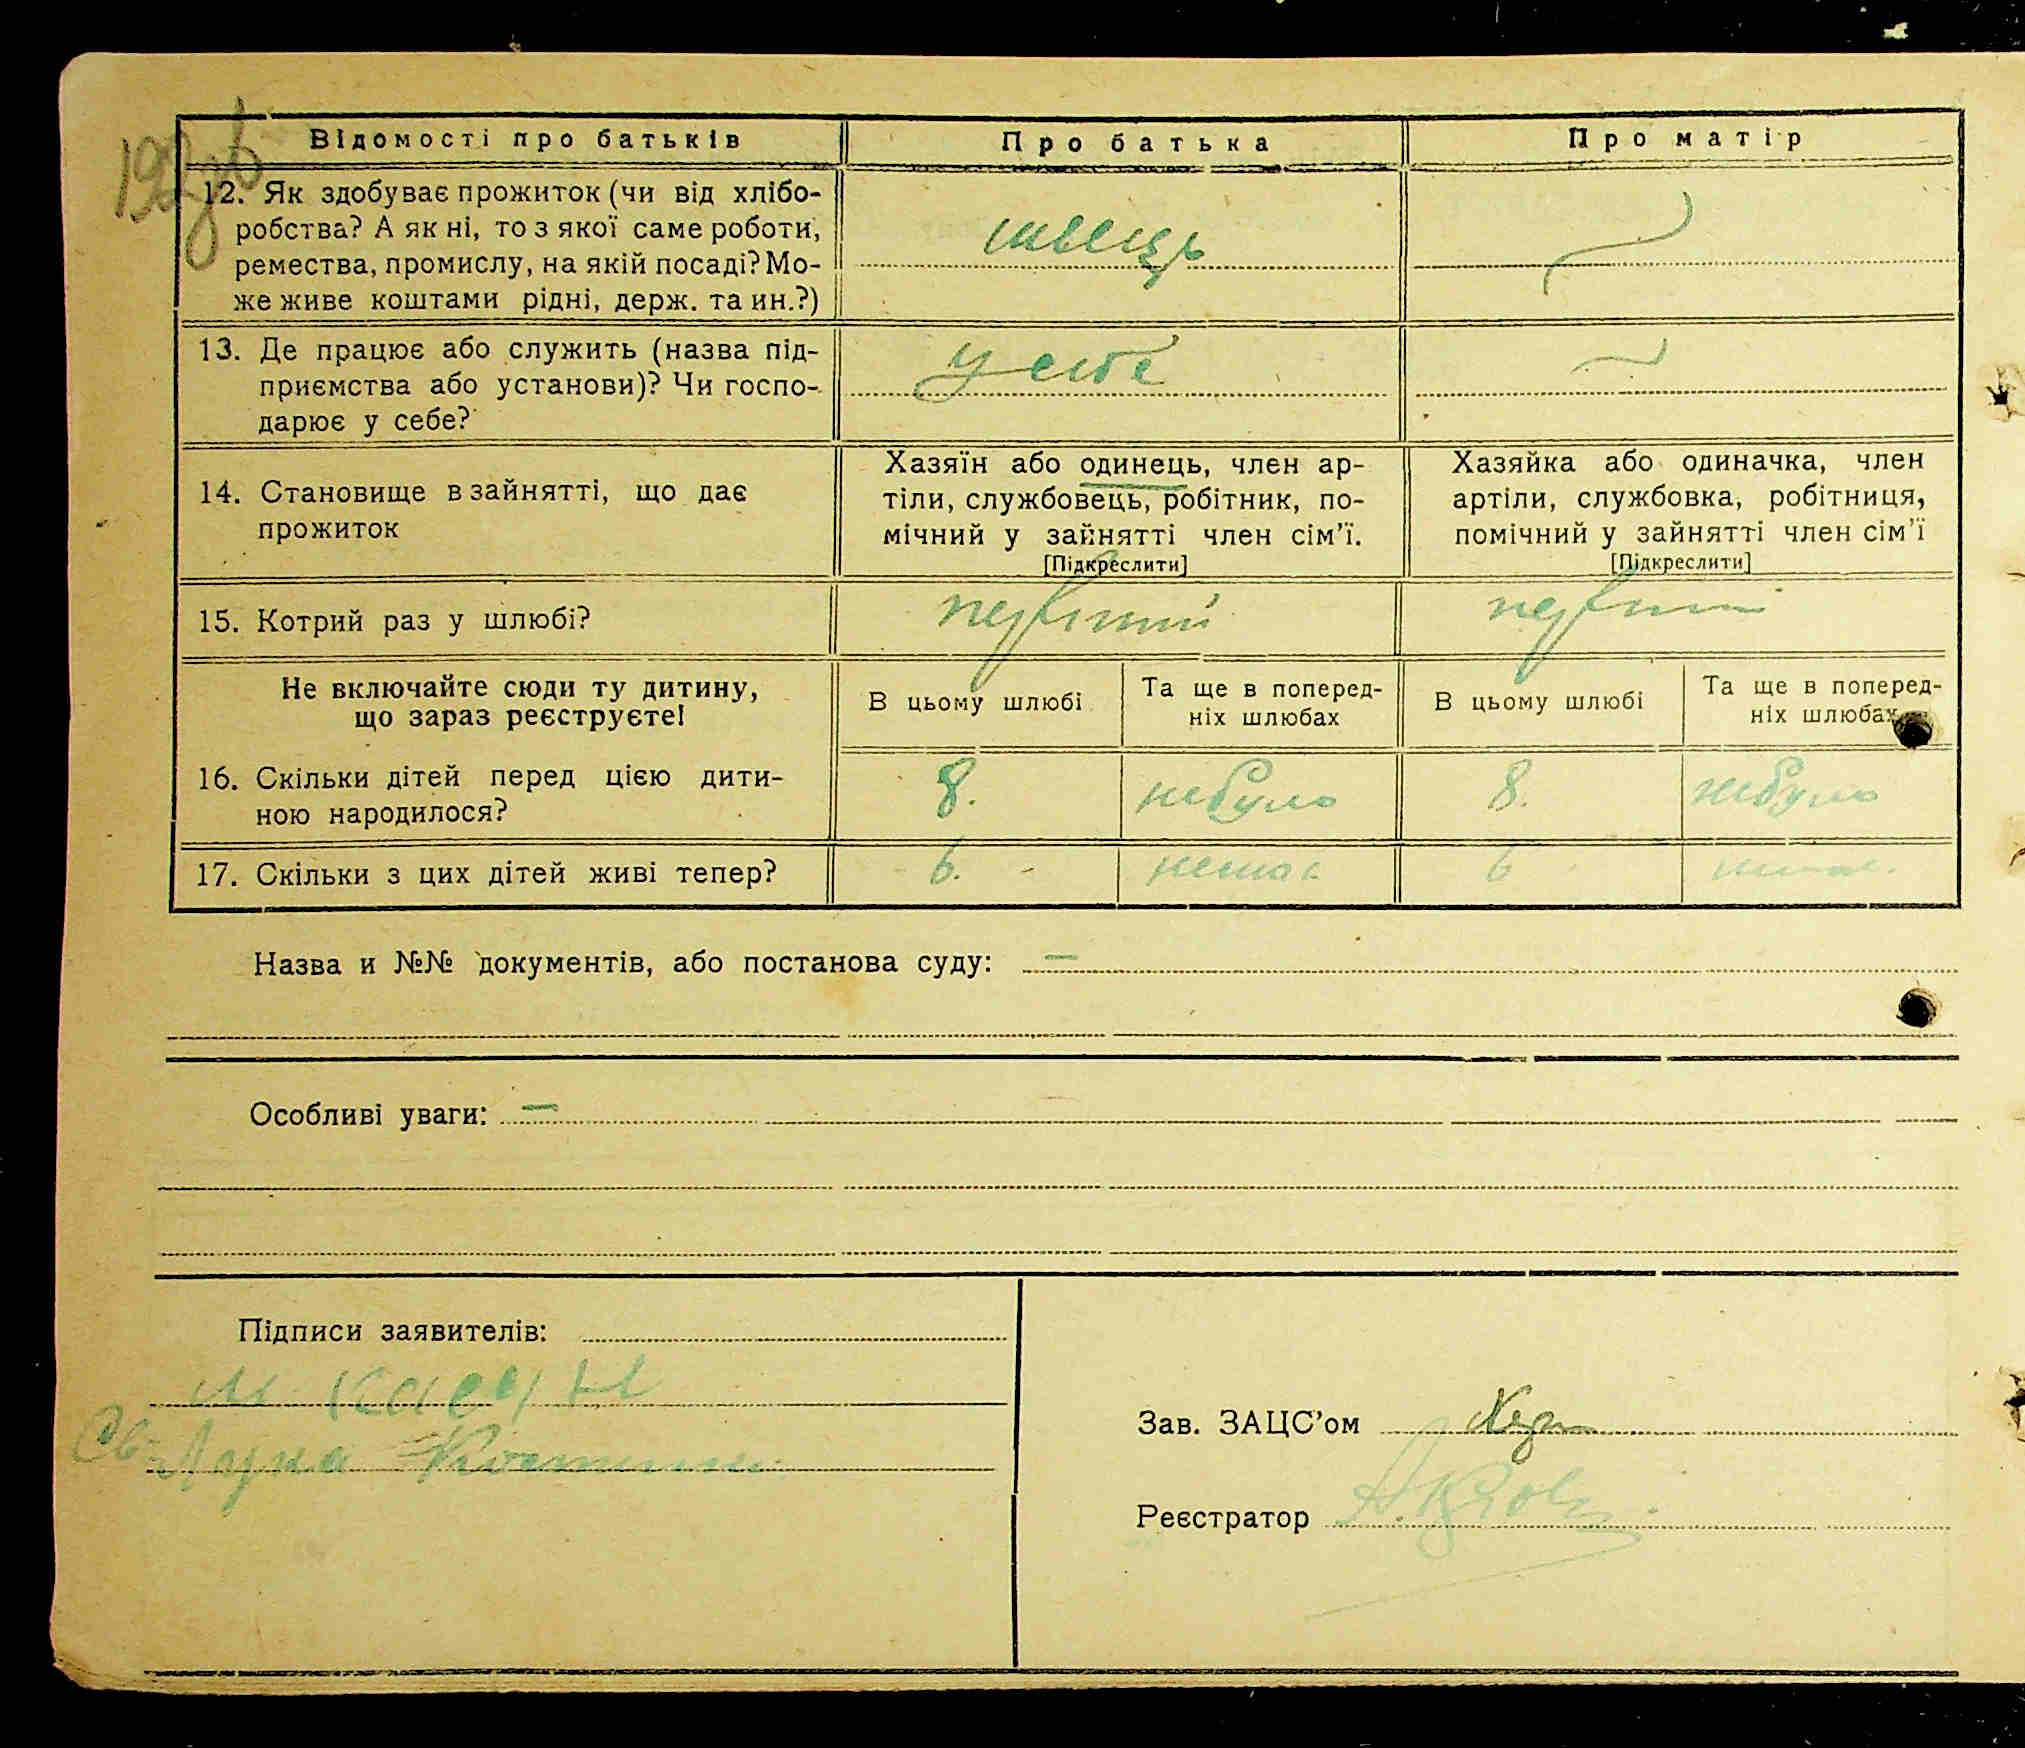 Відомості про батьків Про батька Про матір
12. Як здобуває прожиток (чи від хлібо-
робства? А як ні, то з якої саме роботи,
ремества, промислу, на якій посаді? Мо-
же живе коштами рідні, держ. та ин.?)
швець
13. Де працює або служить (назва під-
приємства або установи)? Чи госпо-
дарює у себе?
у себе
14. Становище в зайнятті, що дає
прожиток
Хазяїн або одинець, член ар-
тіли, службовець, робітник, по-
мічний у зайнятті член сім'ї.
[Підкреслити]
Хазяйка або одиначка, член
артіли, службовка, робітниця,
помічний у зайнятті член сім'ї
[Підкреслити]
15. Котрий раз у шлюбі?
Не включайте сюди ту дитину,
що зараз реєструєте!
В цьому шлюбі
Та ще в поперед-
ніх шлюбах
В цьому шлюбі
Та ще в поперед-
ніх шлюбах
16. Скільки дітей перед цією дити-
ною народилося?
8. небуло 8. небуло
17. Скільки з цих дітей живі тепер? 6. немає 6 немає.
Назва и №№ документів, або постанова суду: —
Особливі уваги: —
Підписи заявителів:
Зав. ЗАЦС'ом
Реєстратор